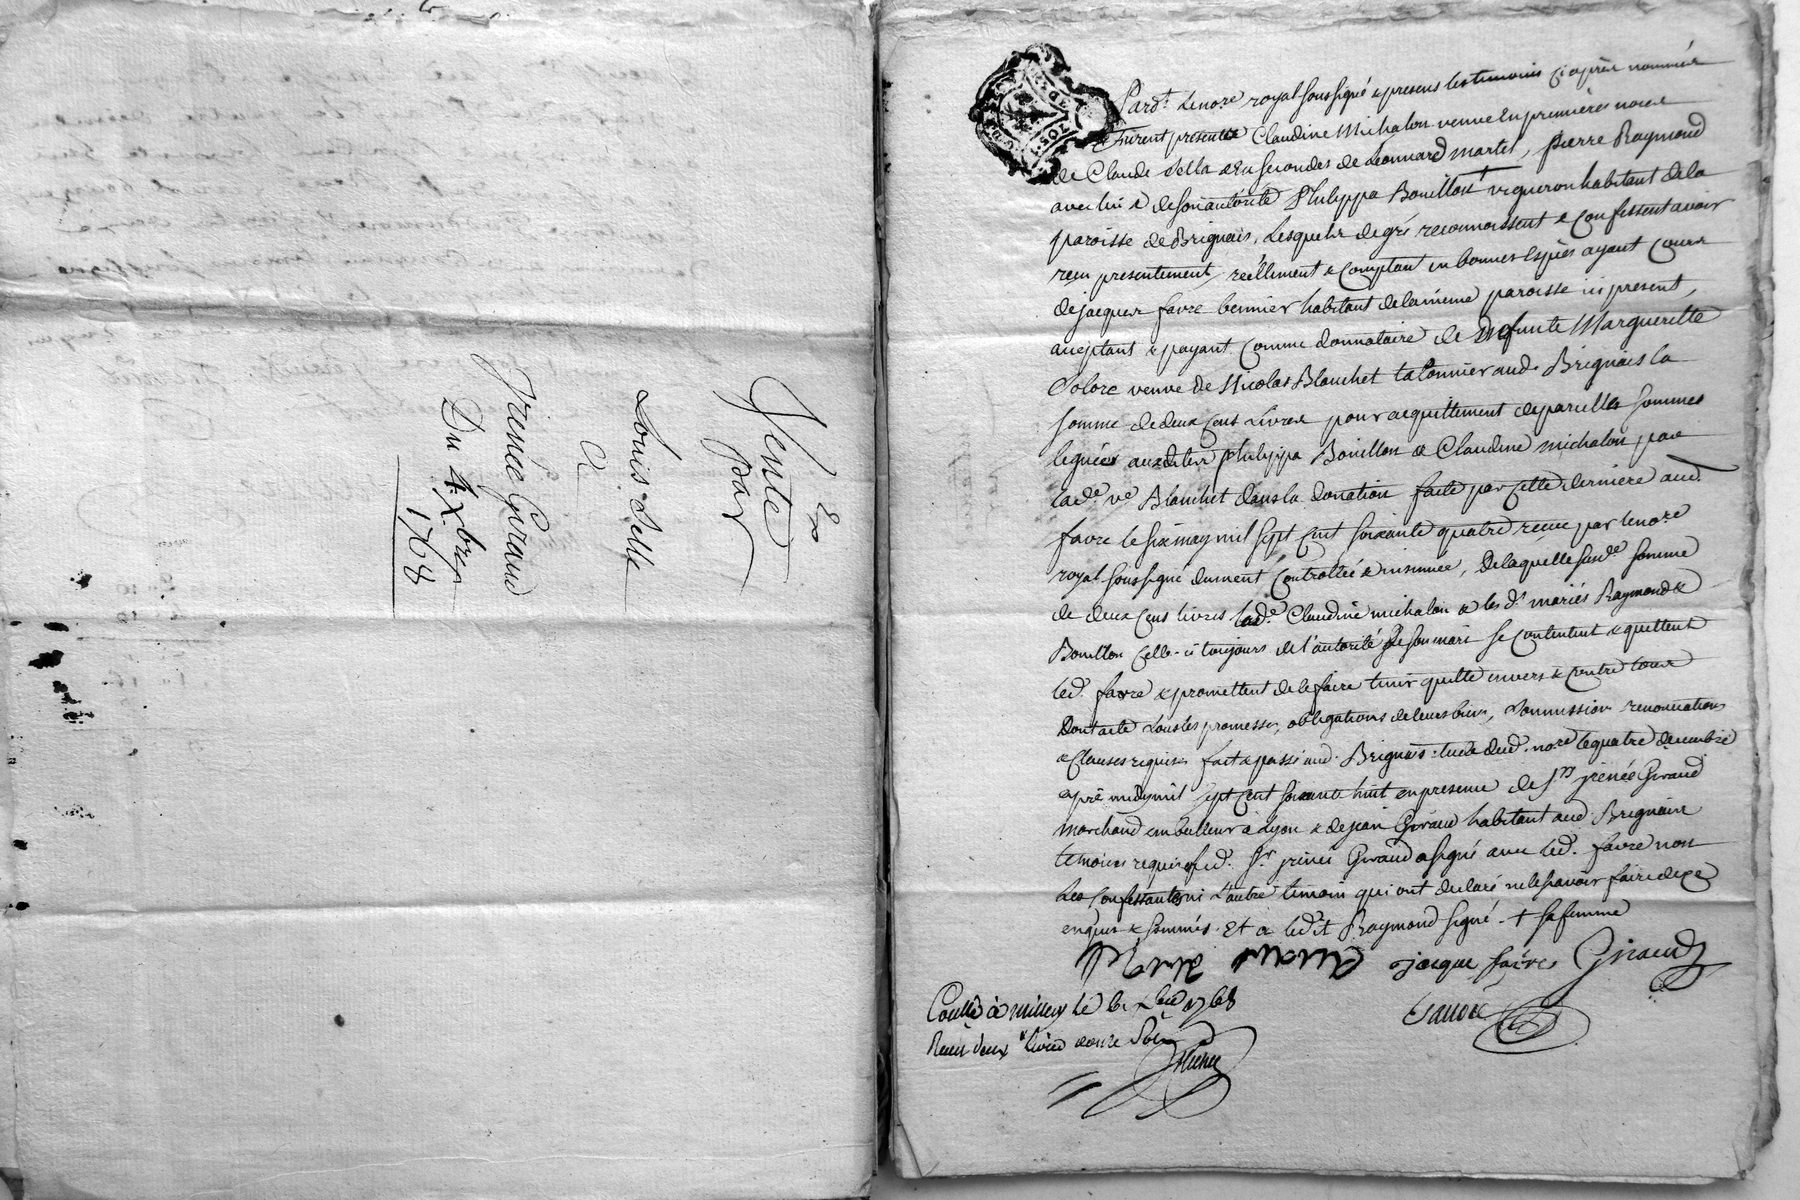 Vente
par
Louis Sella
a
Irenée Giraud
Du 4 Xbre
1768
Pard.t Le no.re royal soussigné & presens les temoins ci après nommés
Furent presents Claudine Michalon veuve en premières noces
de Claude Sella & en secondes de Leonnard martel, pierre Raymond
avec lui & de son autorité Philippa Bouillon + vigneron habitant de la
paroisse de Brignais, Lesquels de gré reconnoissent & confessent avoir
reçu presentement, réellement & comptant en bonnes espèces ayant cours
de jacques favre bennier habitant de la meme paroisse ici present,
aceptant & payant comme donnataire de defunte Marguerite
veuve de Nicolas Blanchet aud. Brignais la
somme de deux cens Livres pour acquittement de pareilles sommes
leguées auxdites philippa Bouillon & Claudine michalon par
lad.e v.e Blanchet dans la donation faite par cette derniere aud.
favre le six may mil sept cent soixante quatre reçue par le no.re
royal soussigné dument controllée & insinuée, De laquelle susd.e somme
de deux cens livres lad.e Claudine michalon & les d.s mariés Raymond &
Bouillon celle-ci toujours de l'autorité de son mari se contentent & quittent
led. favre & promettent de le faire tenir quitte envers & contre tous
Dont acte sous les promesses, obligations de leurs biens, soumissions renonciations
& clauses requises fait & passé aud. Brignais etude dud. no.re le quatre decembre
après midy mil sept cent soixante huit en presence de S.r irenée Giraud
marchand emballeur à Lyon & de jean Giraud habitant aud. Brignais
temoins requis led. S.r irenée Giraud a signé avec led. favre non
les confessantes ni l'autre temoin qui ont declaré ne le savoir faire de ce
enquis & sommés. Et a ledit Raymond signé - + sa femme
jacque favre Giraud
Con.lé à Millery le 6 Xbre 1768
Reçu deux Livres douze Sols